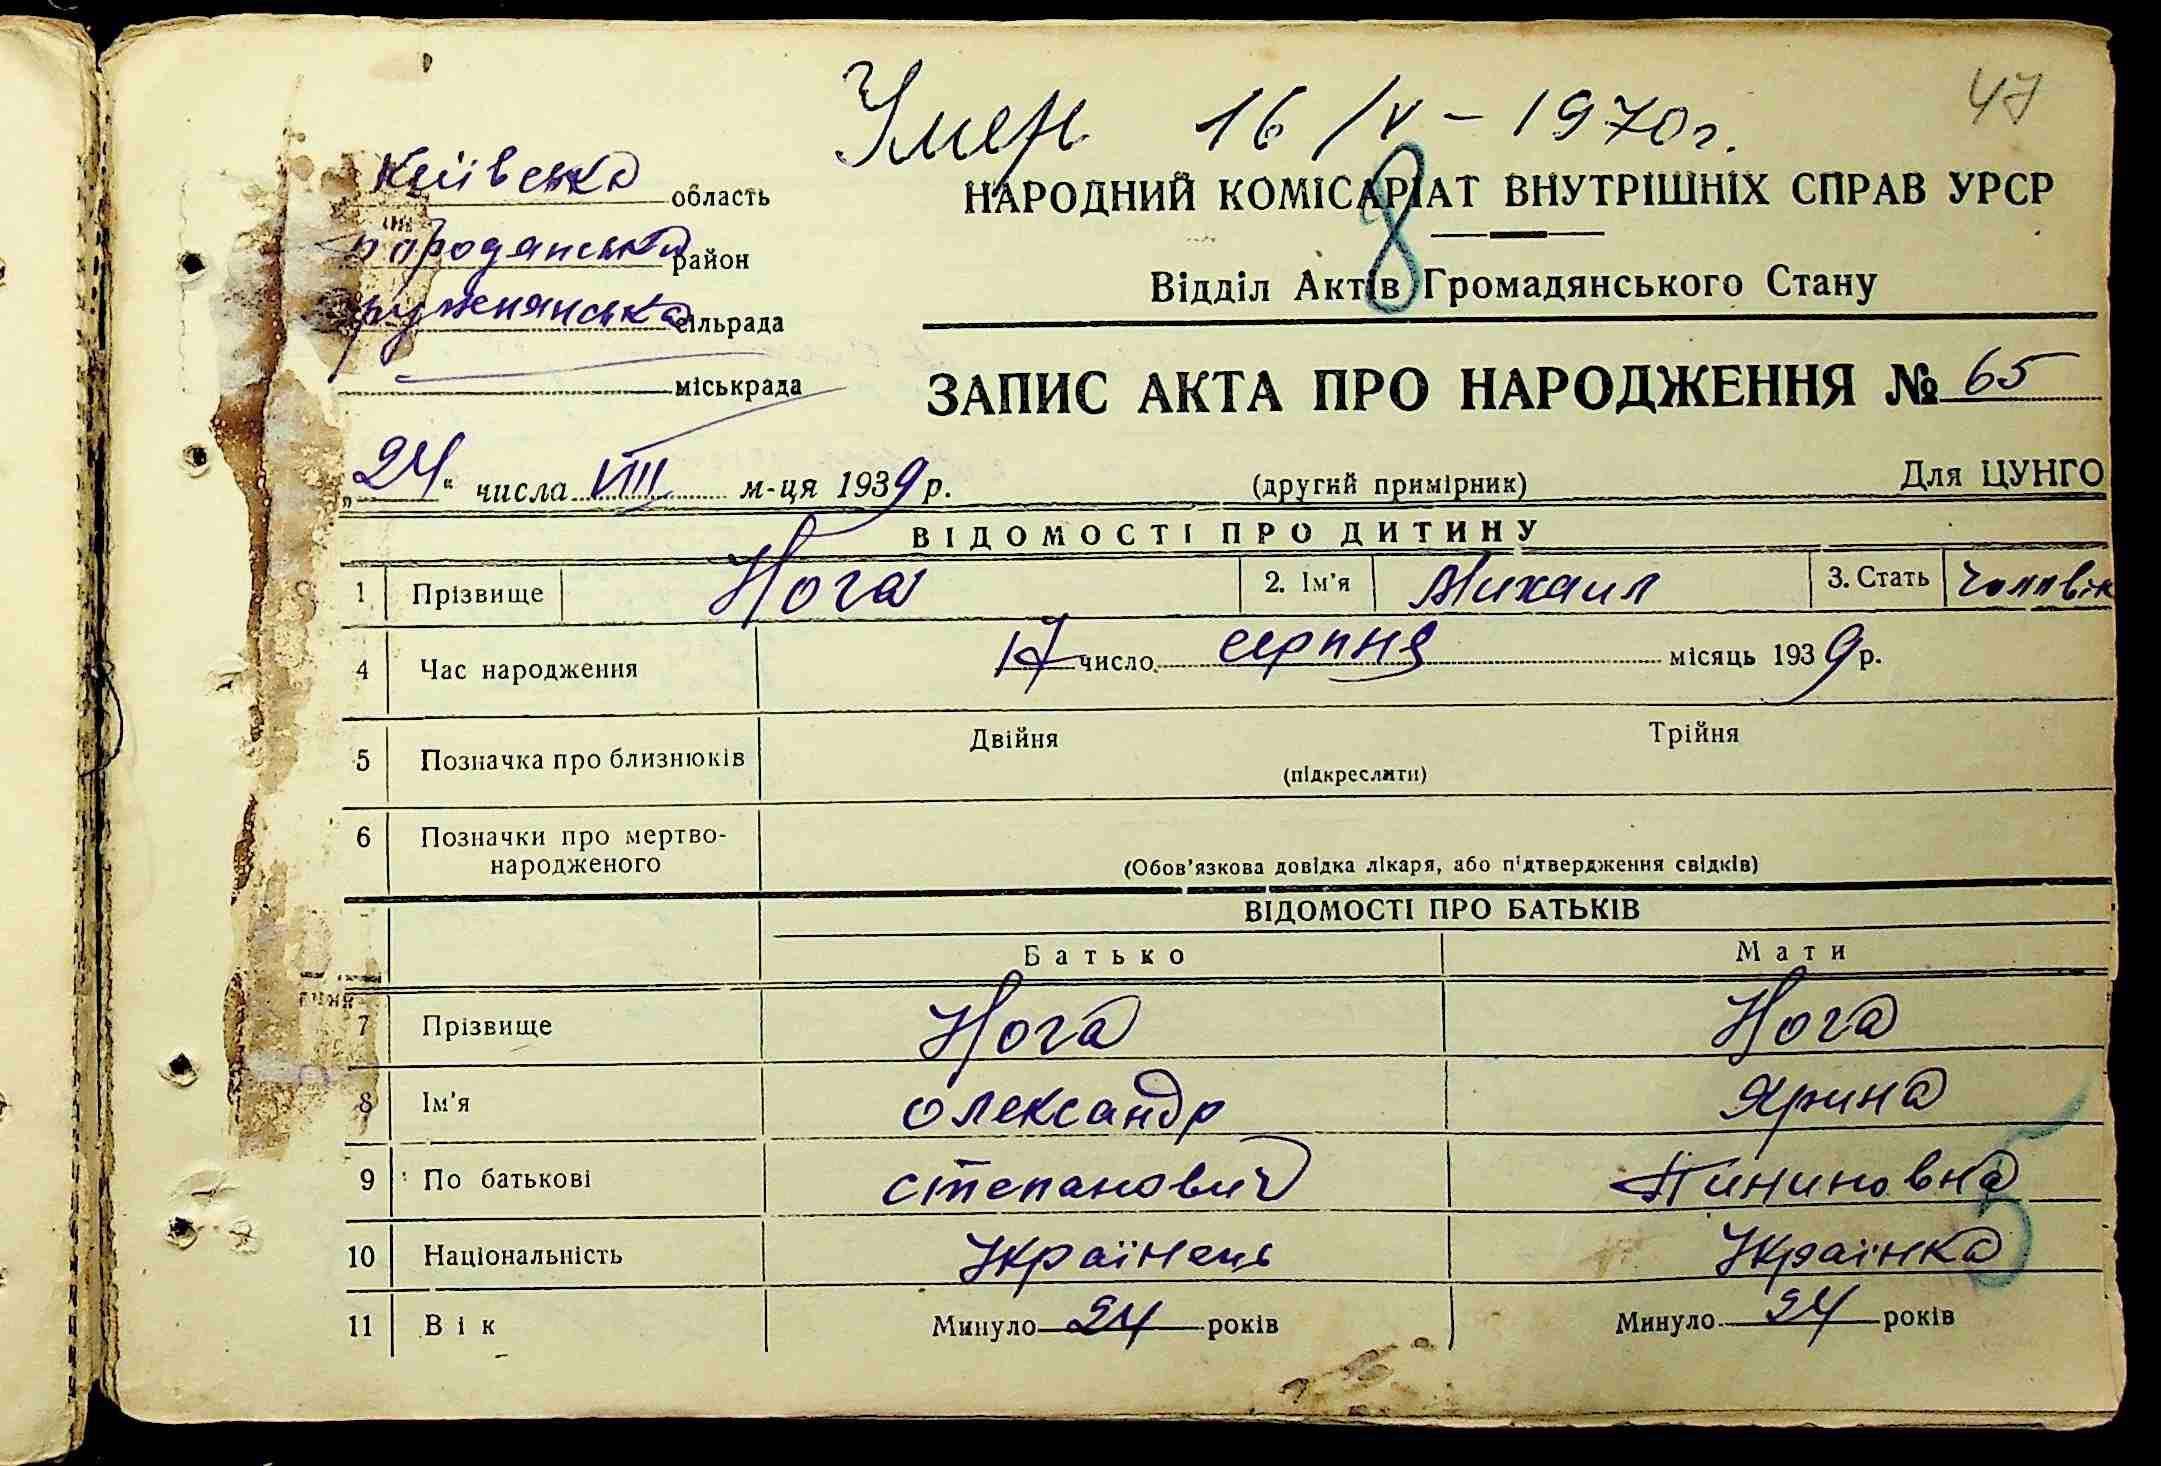 47
Умер 16/V - 1970г.
Київська область
Бородянська район
сільрада
міськрада
НАРОДНИЙ КОМІСАРІАТ ВНУТРІШНІХ СПРАВ УРСР
8
Відділ Актів Громадянського Стану
ЗАПИС АКТА ПРО НАРОДЖЕННЯ № 65
„24“ числа VIII м-ця 1939 р. (другий примірник) Для ЦУНГО
ВІДОМОСТІ ПРО ДИТИНУ
1 Прізвище Нога 2. Ім'я Михаил 3. Стать чоловік
4 Час народження 17 число серпня місяць 1939 р.
5 Позначка про близнюків Двійня Трійня
(підкреслити)
6 Позначки про мертво-
народженого
(Обов'язкова довідка лікаря, або підтвердження свідків)
ВІДОМОСТІ ПРО БАТЬКІВ
Батько Мати
7 Прізвище Нога Нога
8 Ім'я Олександр Ярина
9 По батькові Степанович
10 Національність Українець Українка
5
11 Вік Минуло 24 років Минуло 24 років